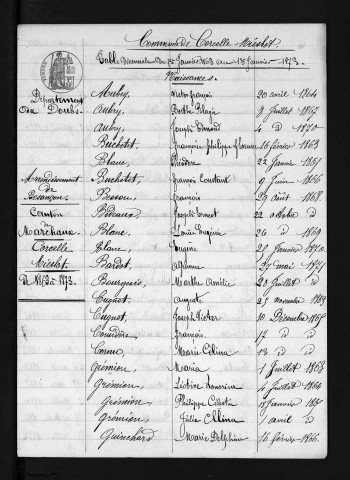 Commune de Corcelle Mieslot.
Table Décennale Du 1er Janvier 1863 au 1er Janvier 1873.
Naissances.
Département
du Doubs.
Arrondissement
de
Besançon.
Canton
de
Marchaux
Corcelle
Mieslot
De 1863 à 1873.
Aubry, Victor françois 20 avril 1864
Aubry, 7 Juillet 1867
Aubry, Joseph Edmond 4 d 1870
Buchotet, françois philippe 16 février 1863
Blanc, 22 Janvier
Buchotet, françois Constant 9 Juin 1866
Besson, françois 29 août 1868
Joseph Ernest 22 octobre d
Blanc, Louise Eugénie 26 d 1869
Blanc, Eugène 21 Janvier 1870
Bardot, alphonse 27 mai 1871
Bourgeois, Marthe Amélie 20 Juillet d
Cugnot, auguste 25 novembre
Cugnot, Joseph Victor 10 Décembre
françois 17 d d
Marie Célina 13 d d
Grémion, Maria 1 Juillet 1863
Grémion, 4 Juillet 1864
Grémion, Philippe Célestin Janvier
Grémion, Julie Célina 1 avril d
Guinchard, Marie Delphine 16 février 1866.